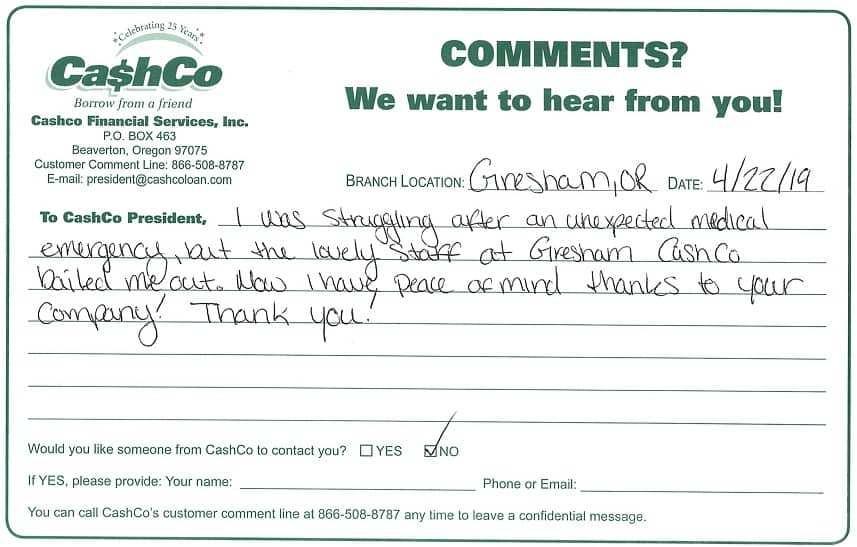 Celebrating 25 Years
Ca$hCo
Borrow from a friend
Cashco Financial Services, Inc.
P.O. BOX 463
Beaverton, Oregon 97075
Customer Comment Line: 866-508-8787
E-mail: president@cashcoloan.com
COMMENTS?
We want to hear from you!
BRANCH LOCATION: Gresham, OR DATE: 4/22/19
To CashCo President, I was struggling after an unexpected medical
emergency, but the lovely staff at Gresham CashCo
bailed me out. Now I have peace of mind thanks to your
company! Thank you!
Would you like someone from CashCo to contact you? ☐ YES ☑ NO
If YES, please provide: Your name: Phone or Email:
You can call CashCo's customer comment line at 866-508-8787 any time to leave a confidential message.